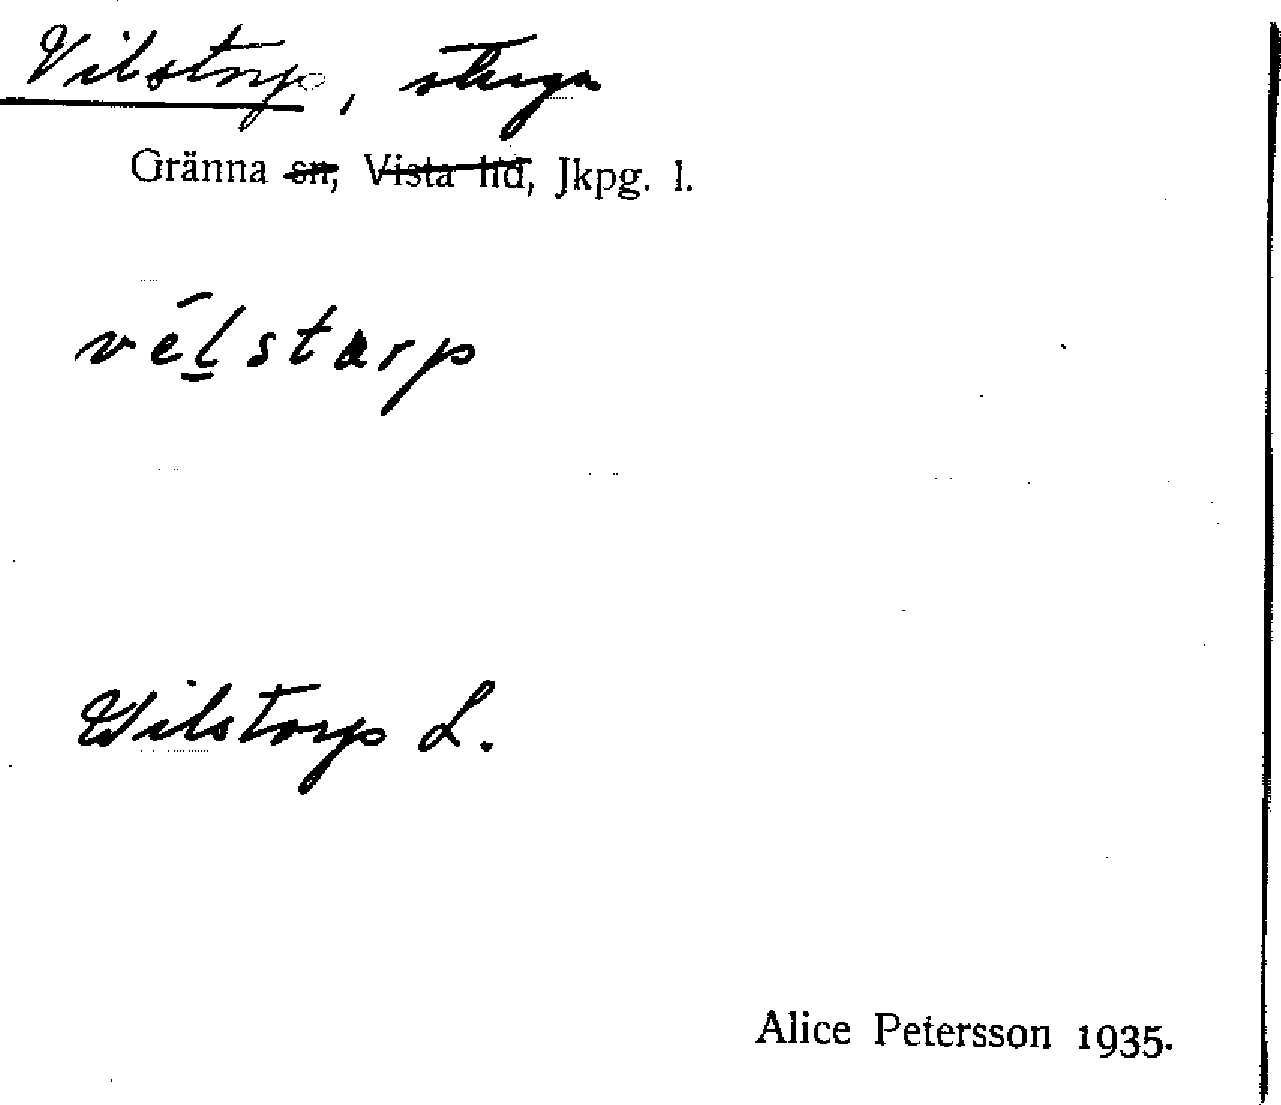 Vilstorp, stuga
Gränna sn, Vista hd, Jkpg. l.
vélstarp
Wilstorp L.
Alice Petersson 1935.